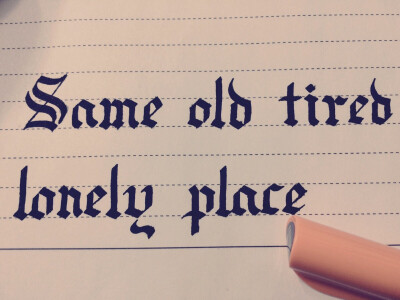 Same old tired
lonely place